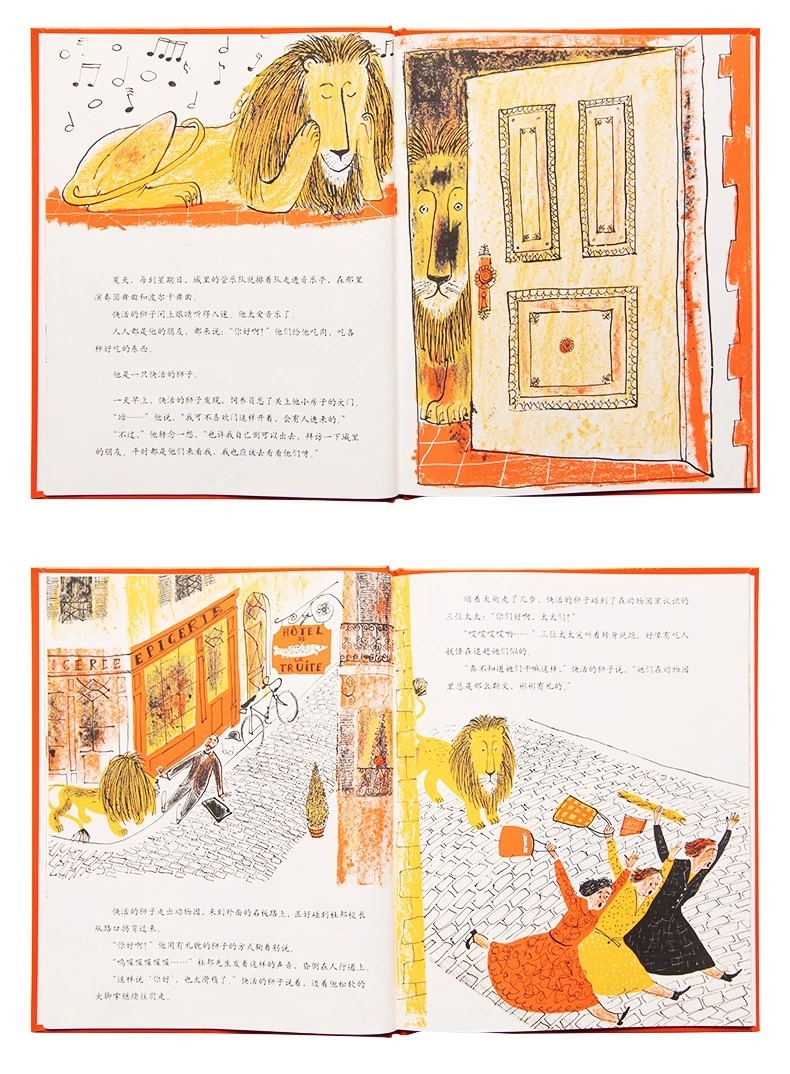 夏天，每到星期日，城里的管乐队就排着队走进音乐亭，在那里
演奏圆舞曲和波尔卡舞曲。
快活的狮子闭上眼睛听得入迷。他太爱音乐了。
人人都是他的朋友，都来说：“你好啊！”他们给他吃肉，吃各
种好吃的东西。
他是一只快活的狮子。
一天早上，快活的狮子发现，饲养员忘了关上他小房子的大门。
“哈——”他说，“我可不喜欢门这样开着，会有人进来的。”
“不过，”他转念一想，“也许我自己倒可以出去，拜访一下城里
的朋友。平时都是他们来看我，我也应该去看看他们呀。”
EPICERIE
CERIE
HÔTEL
DE
LA
TRUITE
快活的狮子走出动物园，来到外面的石板路上，正好碰到杜邦校长
从路口拐弯过来。
“你好啊！”他用有礼貌的狮子的方式鞠着躬说。
“呜喔喔喔喔喔……”杜邦先生发着这样的声音，昏倒在人行道上。
“这样说‘你好’，也太滑稽了。”快活的狮子说着，迈着他松软的
大脚掌继续往前走。
顺着大街走了几步，快活的狮子碰到了在动物园里认识的
三位太太：“你们好啊，太太们！”
“哎哎哎哎哟……”三位太太尖叫着转身就跑，好像有吃人
妖怪在追赶她们似的。
“真不知道她们干嘛这样，”快活的狮子说，“她们在动物园
里总是那么斯文，彬彬有礼的。”